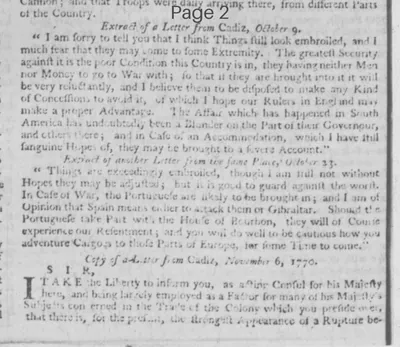 Cannon; and that Troops were daily arriving there, from different Parts
Page 2
of the Country.
Extract of a Letter from Cadiz, October 9.
" I am sorry to tell you that I think Things full look embroiled, and I
much fear that they may come to some Extremity. The greatest Security
against it is the poor Condition this Country is in, they having neither Men
nor Money to go to War with; so that if they are brought into it it will
be very reluctantly, and I believe them to be disposed to make any Kind
of Concession to avoid it, of which I hope our Rulers in England may
make a proper Advantage. The Affair which has happened in South
America has undoubtedly been a Blunder on the Part of their Governour,
and others there; and in Case of an Accommodation, which I have still
sanguine Hopes of, they may be brought to a severe Account."
Extract of another Letter from the same Place, October 23.
" Things are exceedingly embroiled, though I am still not without
Hopes they may be adjusted; but it is good to guard against the worst.
In Case of War, the Portuguese are likely to be brought in; and I am of
Opinion that Spain means either to attack them or Gibraltar. Should the
Portuguese take Part with the House of Bourbon, they will of Course
experience our Resentment; and you will do well to be cautious how you
adventure Cargoes to those Parts of Europe, for some Time to come."
Copy of a Letter from Cadiz, November 6, 1770.
S I R,
I TAKE the Liberty to inform you, as acting Consul for his Majesty
here, and being largely employed as a Factor for many of his Majesty's
Subjects concerned in the Trade of the Colony which you preside over,
that there is, for the present, the strongest Appearance of a Rupture be-